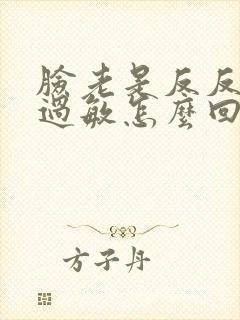 臉老是反反
過敏怎麼回
方子丹